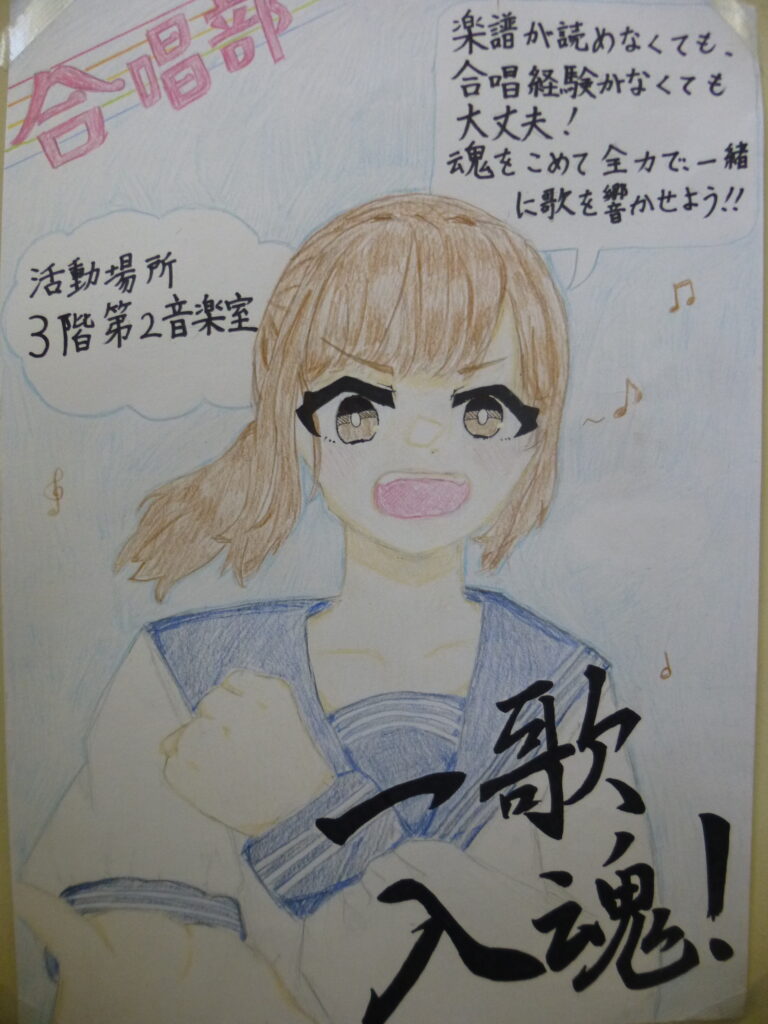 合唱部
楽譜が読めなくても、
合唱経験がなくても
大丈夫!
魂をこめて全力で、一緒
に歌を響かせよう!!
活動場所
3階第2音楽室
一歌
入魂!